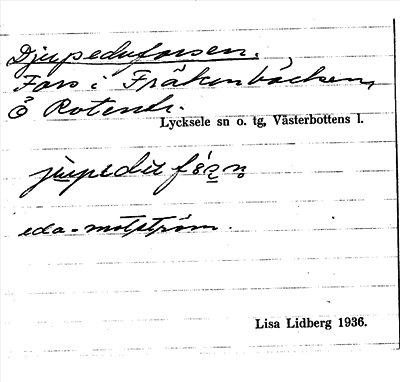 Djupeduforsen.
Fors i Fräkenbäcken,
Ö Rotentr.
Lycksele sn o. tg, Västerbottens l.
eda = motström.
Lisa Lidberg 1936.